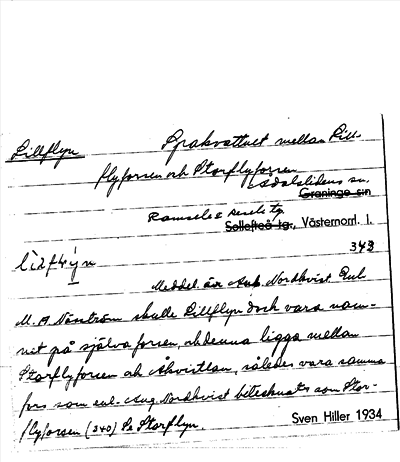 Lillflyn
Spakvattnet mellan Lill-
flyforsen och Storflyforsen
Ådalslidens sn.
Graninge s:n
Ramsele & Resele tg.
Sollefteå tg., Västernorrl. l.
343
Meddel. är Aug. Nordkvist. Enl.
M. A. Näsström skulle Lillflyn dock vara nam-
net på själva forsen, och denna ligga mellan
Storflyforsen och Åkvisslan, således vara samma
fors som enl. Aug. Nordkvist betecknats som Stor-
flyforsen (340) Se Storflyn.
Sven Hiller 1934